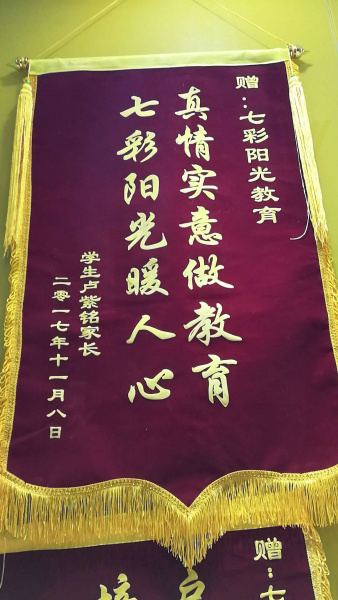 赠：七彩阳光教育
真情实意做教育
七彩阳光暖人心
学生卢紫铭家长
二零一七年十一月八日
赠：七